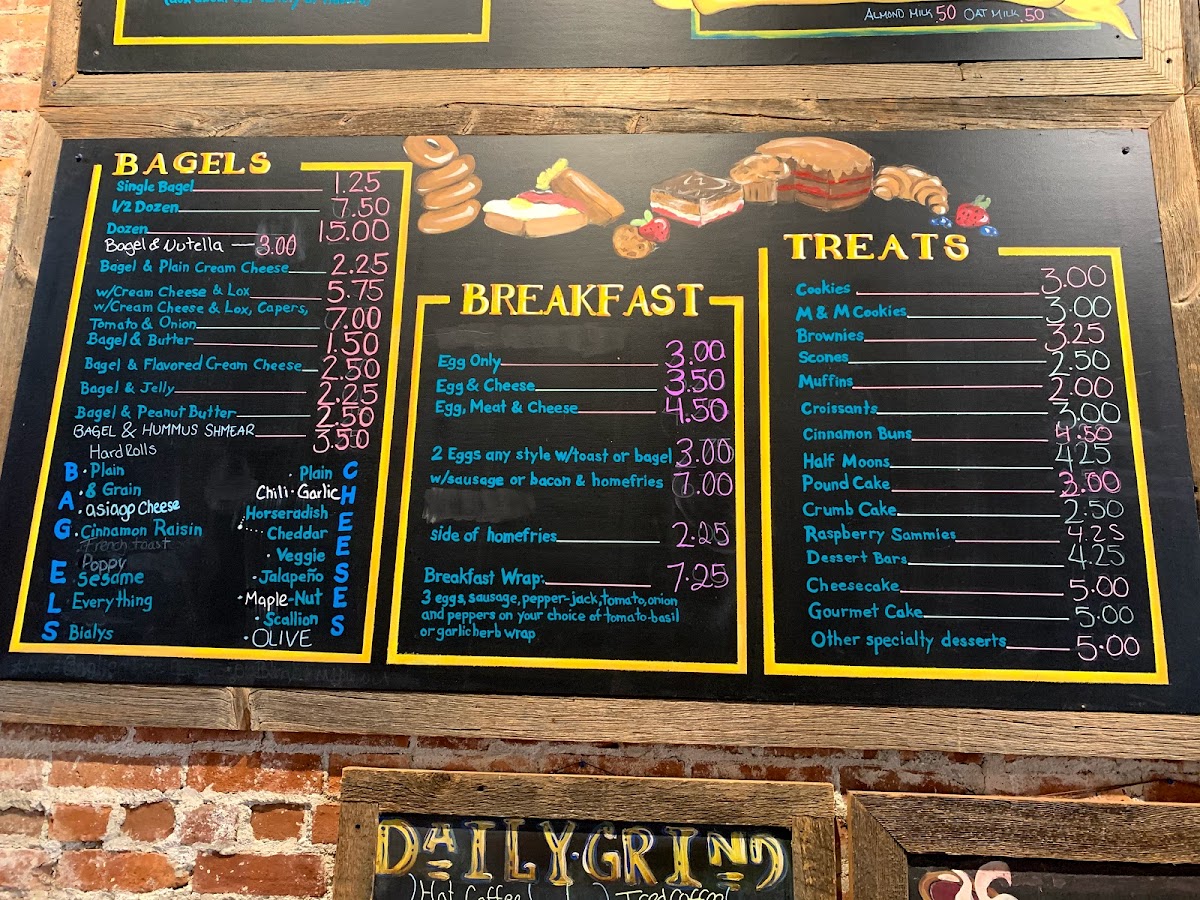 ALMOND MILK .50 OAT MILK .50
BAGELS
Single Bagel 1.25
1/2 Dozen 7.50
Dozen 15.00
Bagel & Nutella — 3.00
Bagel & Plain Cream Cheese 2.25
w/Cream Cheese & Lox 5.75
w/Cream Cheese & Lox, Capers,
Tomato & Onion 7.00
Bagel & Butter 1.50
Bagel & Flavored Cream Cheese 2.50
Bagel & Jelly 2.25
Bagel & Peanut Butter 2.50
BAGEL & HUMMUS SHMEAR 3.50
Hard Rolls
BAGELS
• Plain
• 8 Grain
• asiago Cheese
• Cinnamon Raisin
French toast
Poppy
• Sesame
• Everything
Bialys
CHEESES
• Plain
Chili-Garlic
• Horseradish
• Cheddar
• Veggie
• Jalapeño
• Maple-Nut
• Scallion
• OLIVE
BREAKFAST
Egg Only 3.00
Egg & Cheese 3.50
Egg, Meat & Cheese 4.50
2 Eggs any style w/toast or bagel 3.00
w/sausage or bacon & homefries 7.00
side of homefries 2.25
Breakfast Wrap: 7.25
3 eggs, sausage, pepper-jack, tomato, onion
and peppers on your choice of tomato-basil
or garlic herb wrap
TREATS
Cookies 3.00
M & M Cookies 3.00
Brownies 3.25
Scones 2.50
Muffins 2.00
Croissants 3.00
Cinnamon Buns 4.50
Half Moons 4.25
Pound Cake 3.00
Crumb Cake 2.50
Raspberry Sammies 4.25
Dessert Bars 4.25
Cheesecake 5.00
Gourmet Cake 5.00
Other specialty desserts 5.00
DAILY GRIND
Hot Coffee! Iced Coffee!